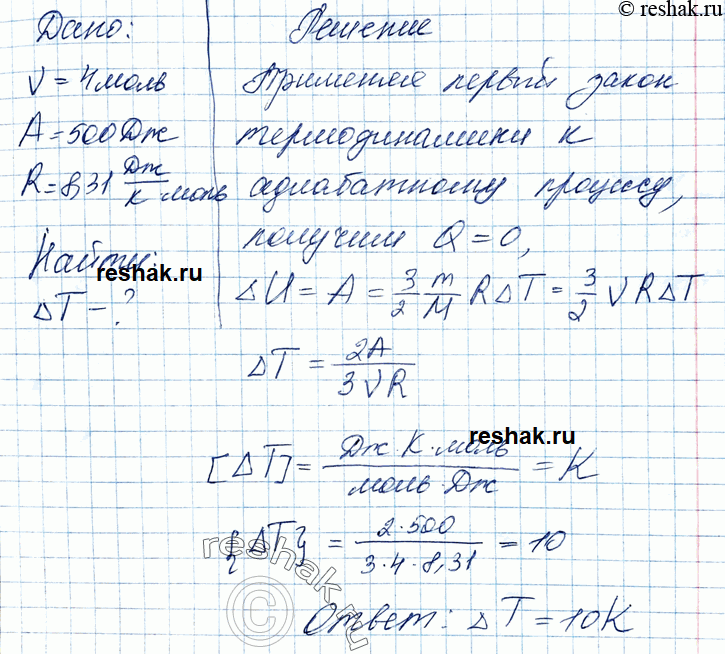 © reshak.ru
Дано:
ν = 4 моль
A = 500 Дж
R = 8,31 Дж/К моль
Найти:
reshak.ru
ΔT - ?
Решение
Применяя первый закон
термодинамики к
адиабатному процессу,
получим Q = 0,
ΔU = A = 3/2 m/M RΔT = 3/2 νRΔT
ΔT = 2A/3νR
reshak.ru
[ΔT] = Дж К·моль/моль·Дж = К
{ΔT} = 2·500/3·4·8,31 = 10
reshak.ru
©
Ответ: ΔT = 10К